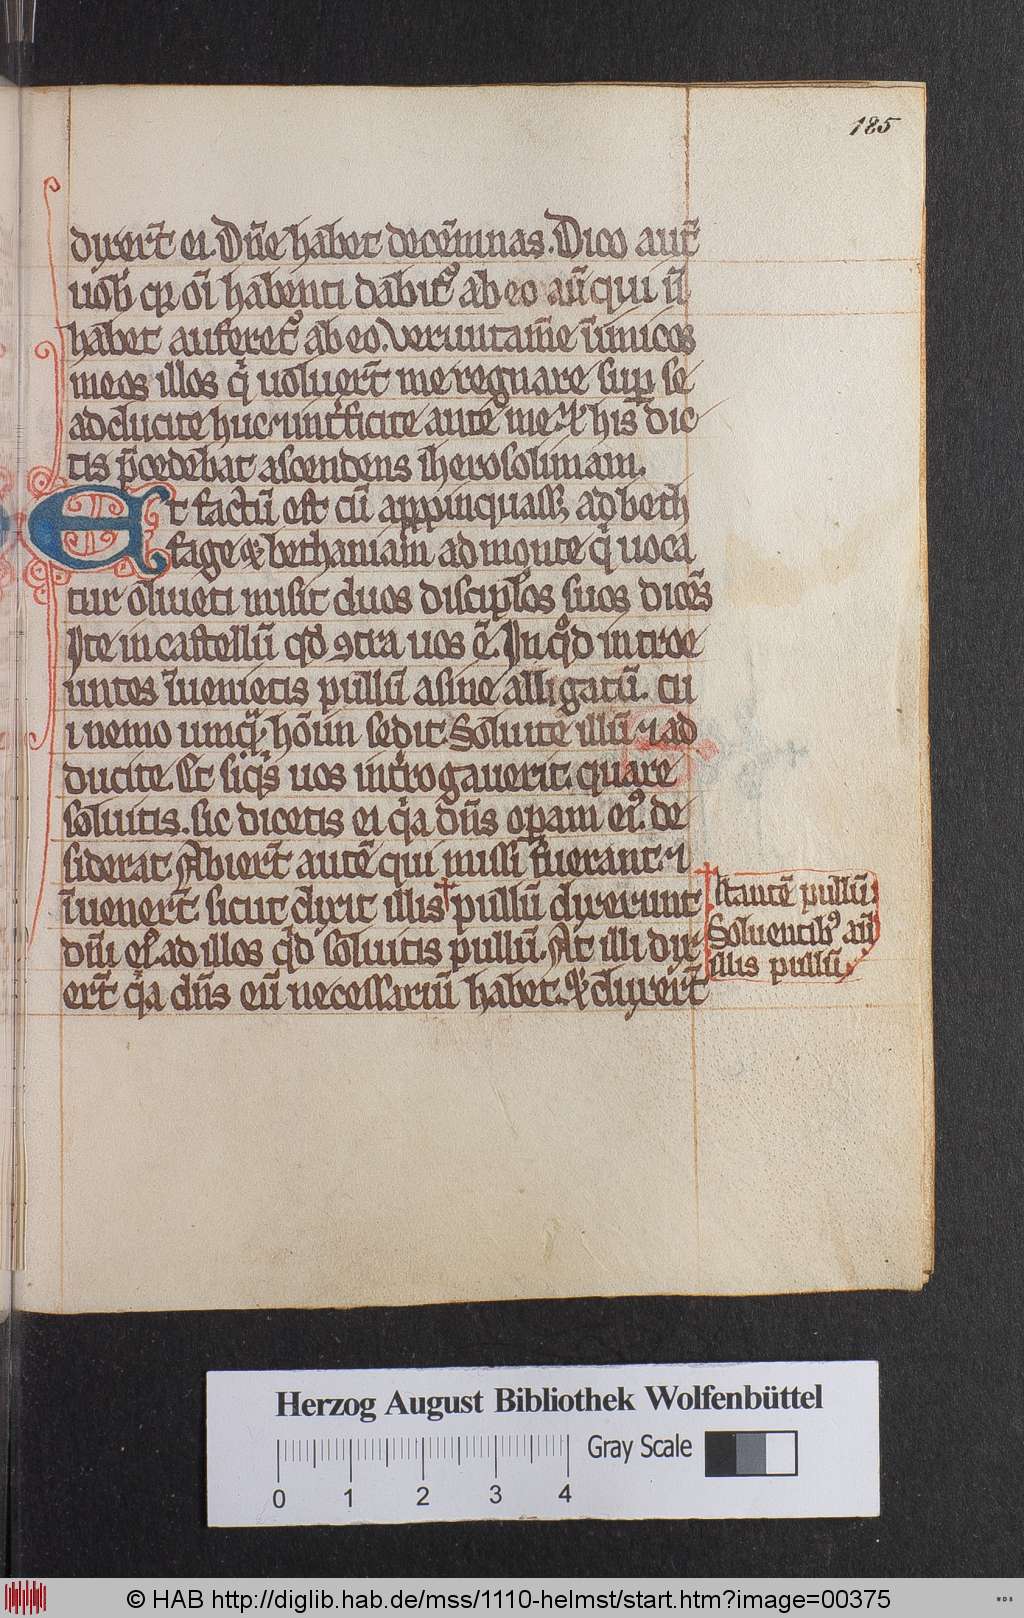 185
dixert̄ ei. Dn̄e habet decē mnas. Dico aut̄
uob̾ qꝛ oī habenti dabit᷒ ab eo aū qui n̄
habet auferet᷒ ab eo. Veruntam̄e inimicos
meos illos q̇ uoluert̄ me regnare sup̱ se
adducite huc ⁊ intf̓icite ante me. ⁊ his dic
tis p̄cedebat ascendens iherosolimam.
Et factū est cū app̱pinquass; ad beth
fage ⁊ bethaniam ad monte q̇ uoca
tur oliueti misit duos discip̱los suos dicēs
Ite in castellū qd̄ ꝯtra uos ē. In qͦd introe
untes īuenietis pullū asine alligatū. cu
i nemo umqᷓ hoīm sedit. Soluite illū ⁊ ad
ducite. Et siq̇s uos intr̓ogauerit. quare
soluitis. sic dicetis ei q̇a dn̄s op̱am ei᷒ de
siderat. Abiert̄ autē qui missi fuerant ⁊
īuenert̄ sicut dixit illis † pullū dixerunt
dn̄i ei᷒ ad illos qd̄ soluitis pullū. At illi dix
ert̄ q̇a dn̄s eū necessariū habet. ⁊ duxert̄
† stantē pullū.
Soluentib᷒ aūt
illis pullū
Herzog August Bibliothek Wolfenbüttel
Gray Scale
0 1 2 3 4
© HAB http://diglib.hab.de/mss/1110-helmst/start.htm?image=00375